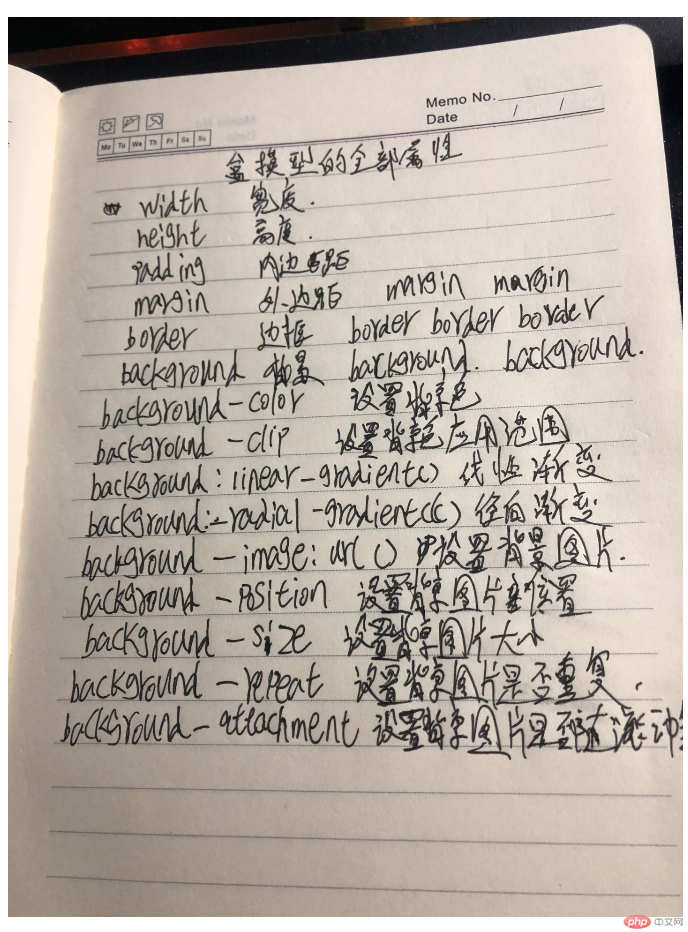 Memo No.
Date / /
Mo Tu We Th Fr Sa Su
盒模型的全部属性
width 宽度.
height 高度.
padding 内边距
margin 外边距 margin margin
border 边框 border border border
background 背景 background. background.
background-color 设置背景色
background-clip 设置背景色应用范围
background:linear-gradient() 线性渐变
background:-radial-gradient(() 径向渐变
background-image:url() 设置背景图片.
background-position 设置背景图片位置
background-size 设置背景图片大小
background-repeat 设置背景图片是否重复.
background-attachment 设置背景图片是否随滚动
php 中文网